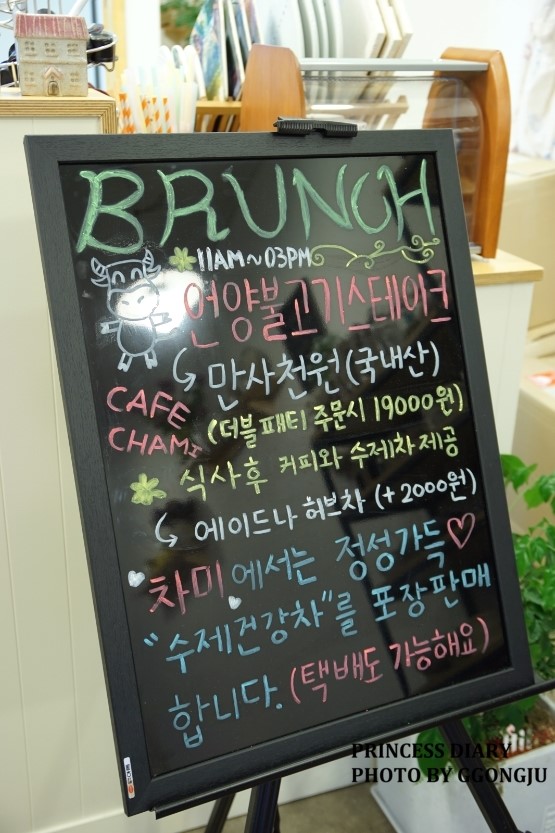 BRUNCH
11AM~03PM
언양불고기스테이크
만사천원(국내산)
CAFE
CHAMI
(더블패티 주문시 19000원)
식사후 커피와 수제차 제공
에이드나 허브차 (+2000원)
차미에서는 정성가득♡
"수제건강차"를 포장판매
합니다. (택배도 가능해요)
PRINCESS DIARY
PHOTO BY GGONGJU